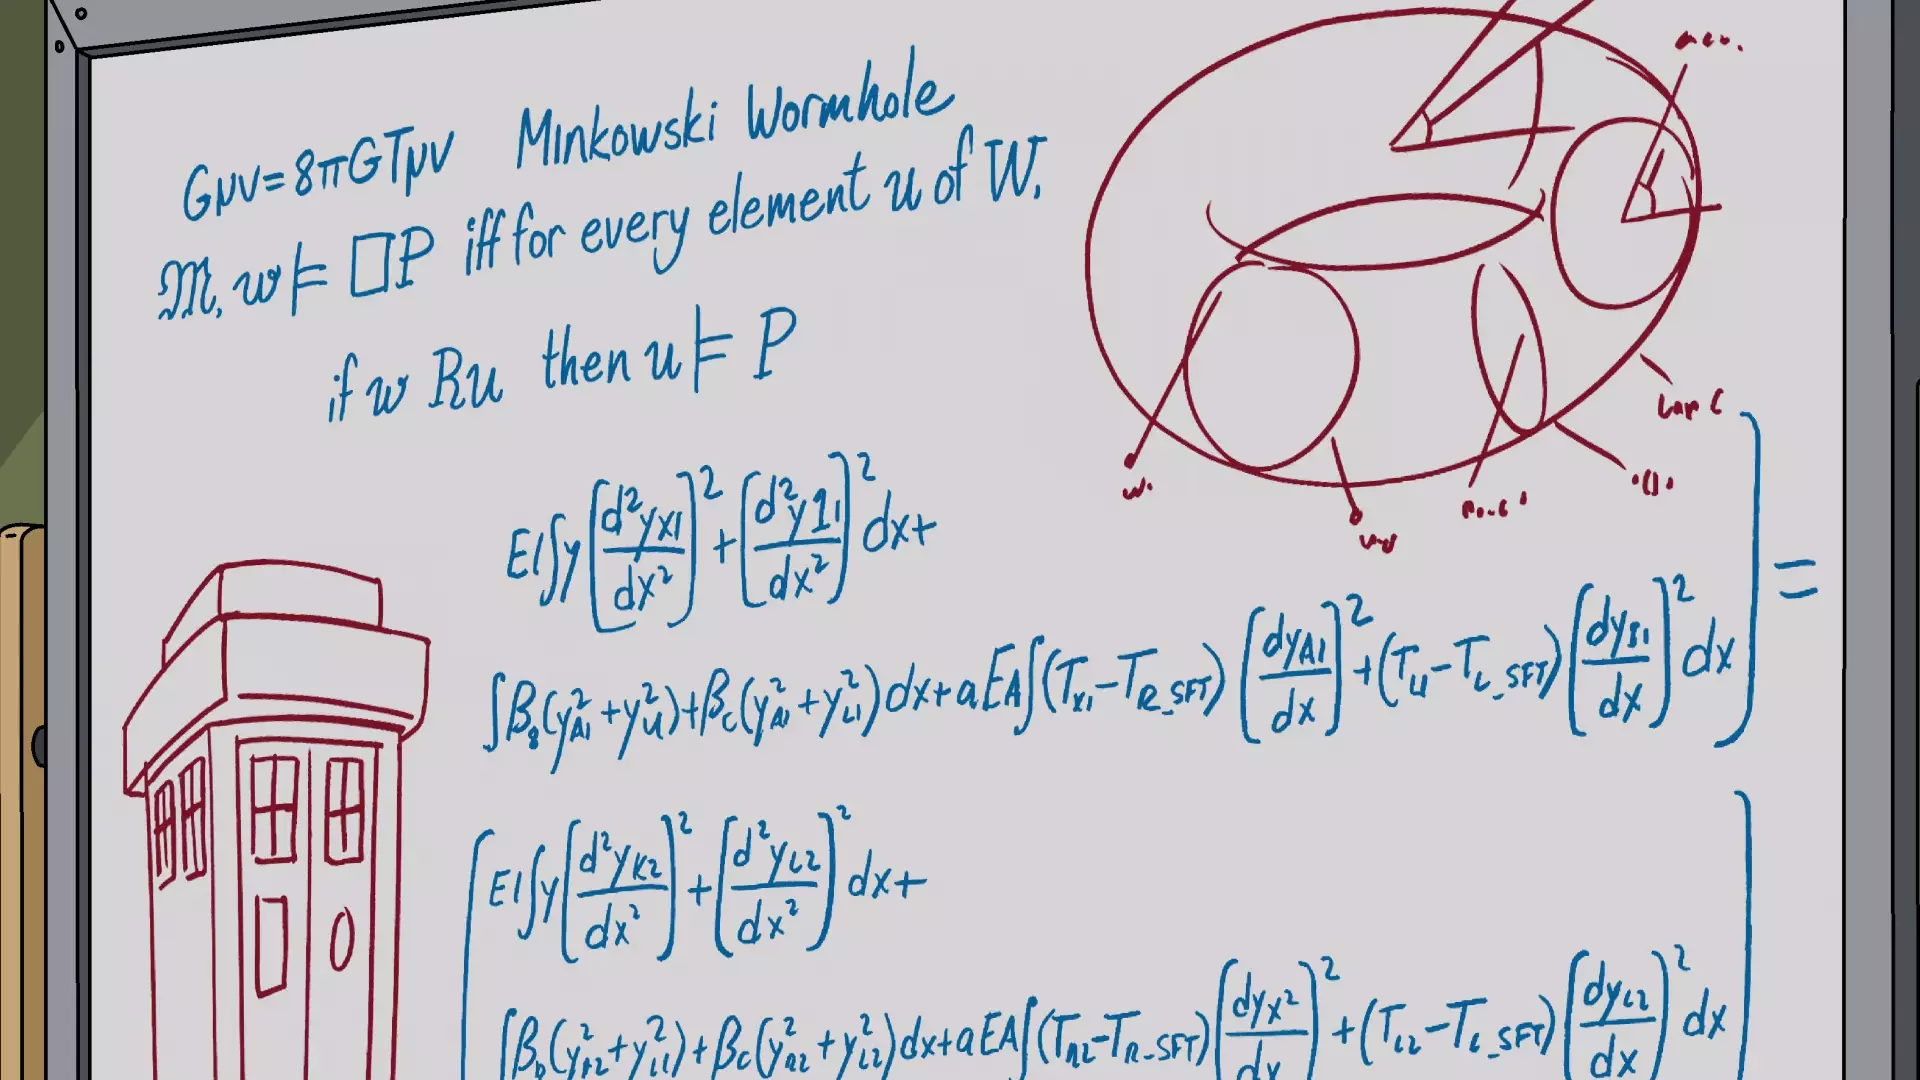 Gμν=8πGTμν Minkowski Wormhole
𝔐, w ⊨ □P iff for every element u of W,
if w Ru then u ⊨ P
EI∫y[d²yx1/dx²]²+[d²y11/dx²]²dx+
∫β8(y²A1+y²u)+βc(y²A1+y²L1)dx+aEA∫(Tx1-TR_SFT)[dyA1/dx]²+(Tu-TL_SFT)[dyS1/dx]²dx] =
[EI∫y[d²yK2/dx²]²+[d²yL2/dx²]²dx+
∫βb(y²A2+y²L1)+βc(y²A2+y²L2)dx+aEA∫(TA2-TR_SFT)[dyx²/dx]²+(TL2-TL_SFT)[dyL2/dx]²dx]
w.